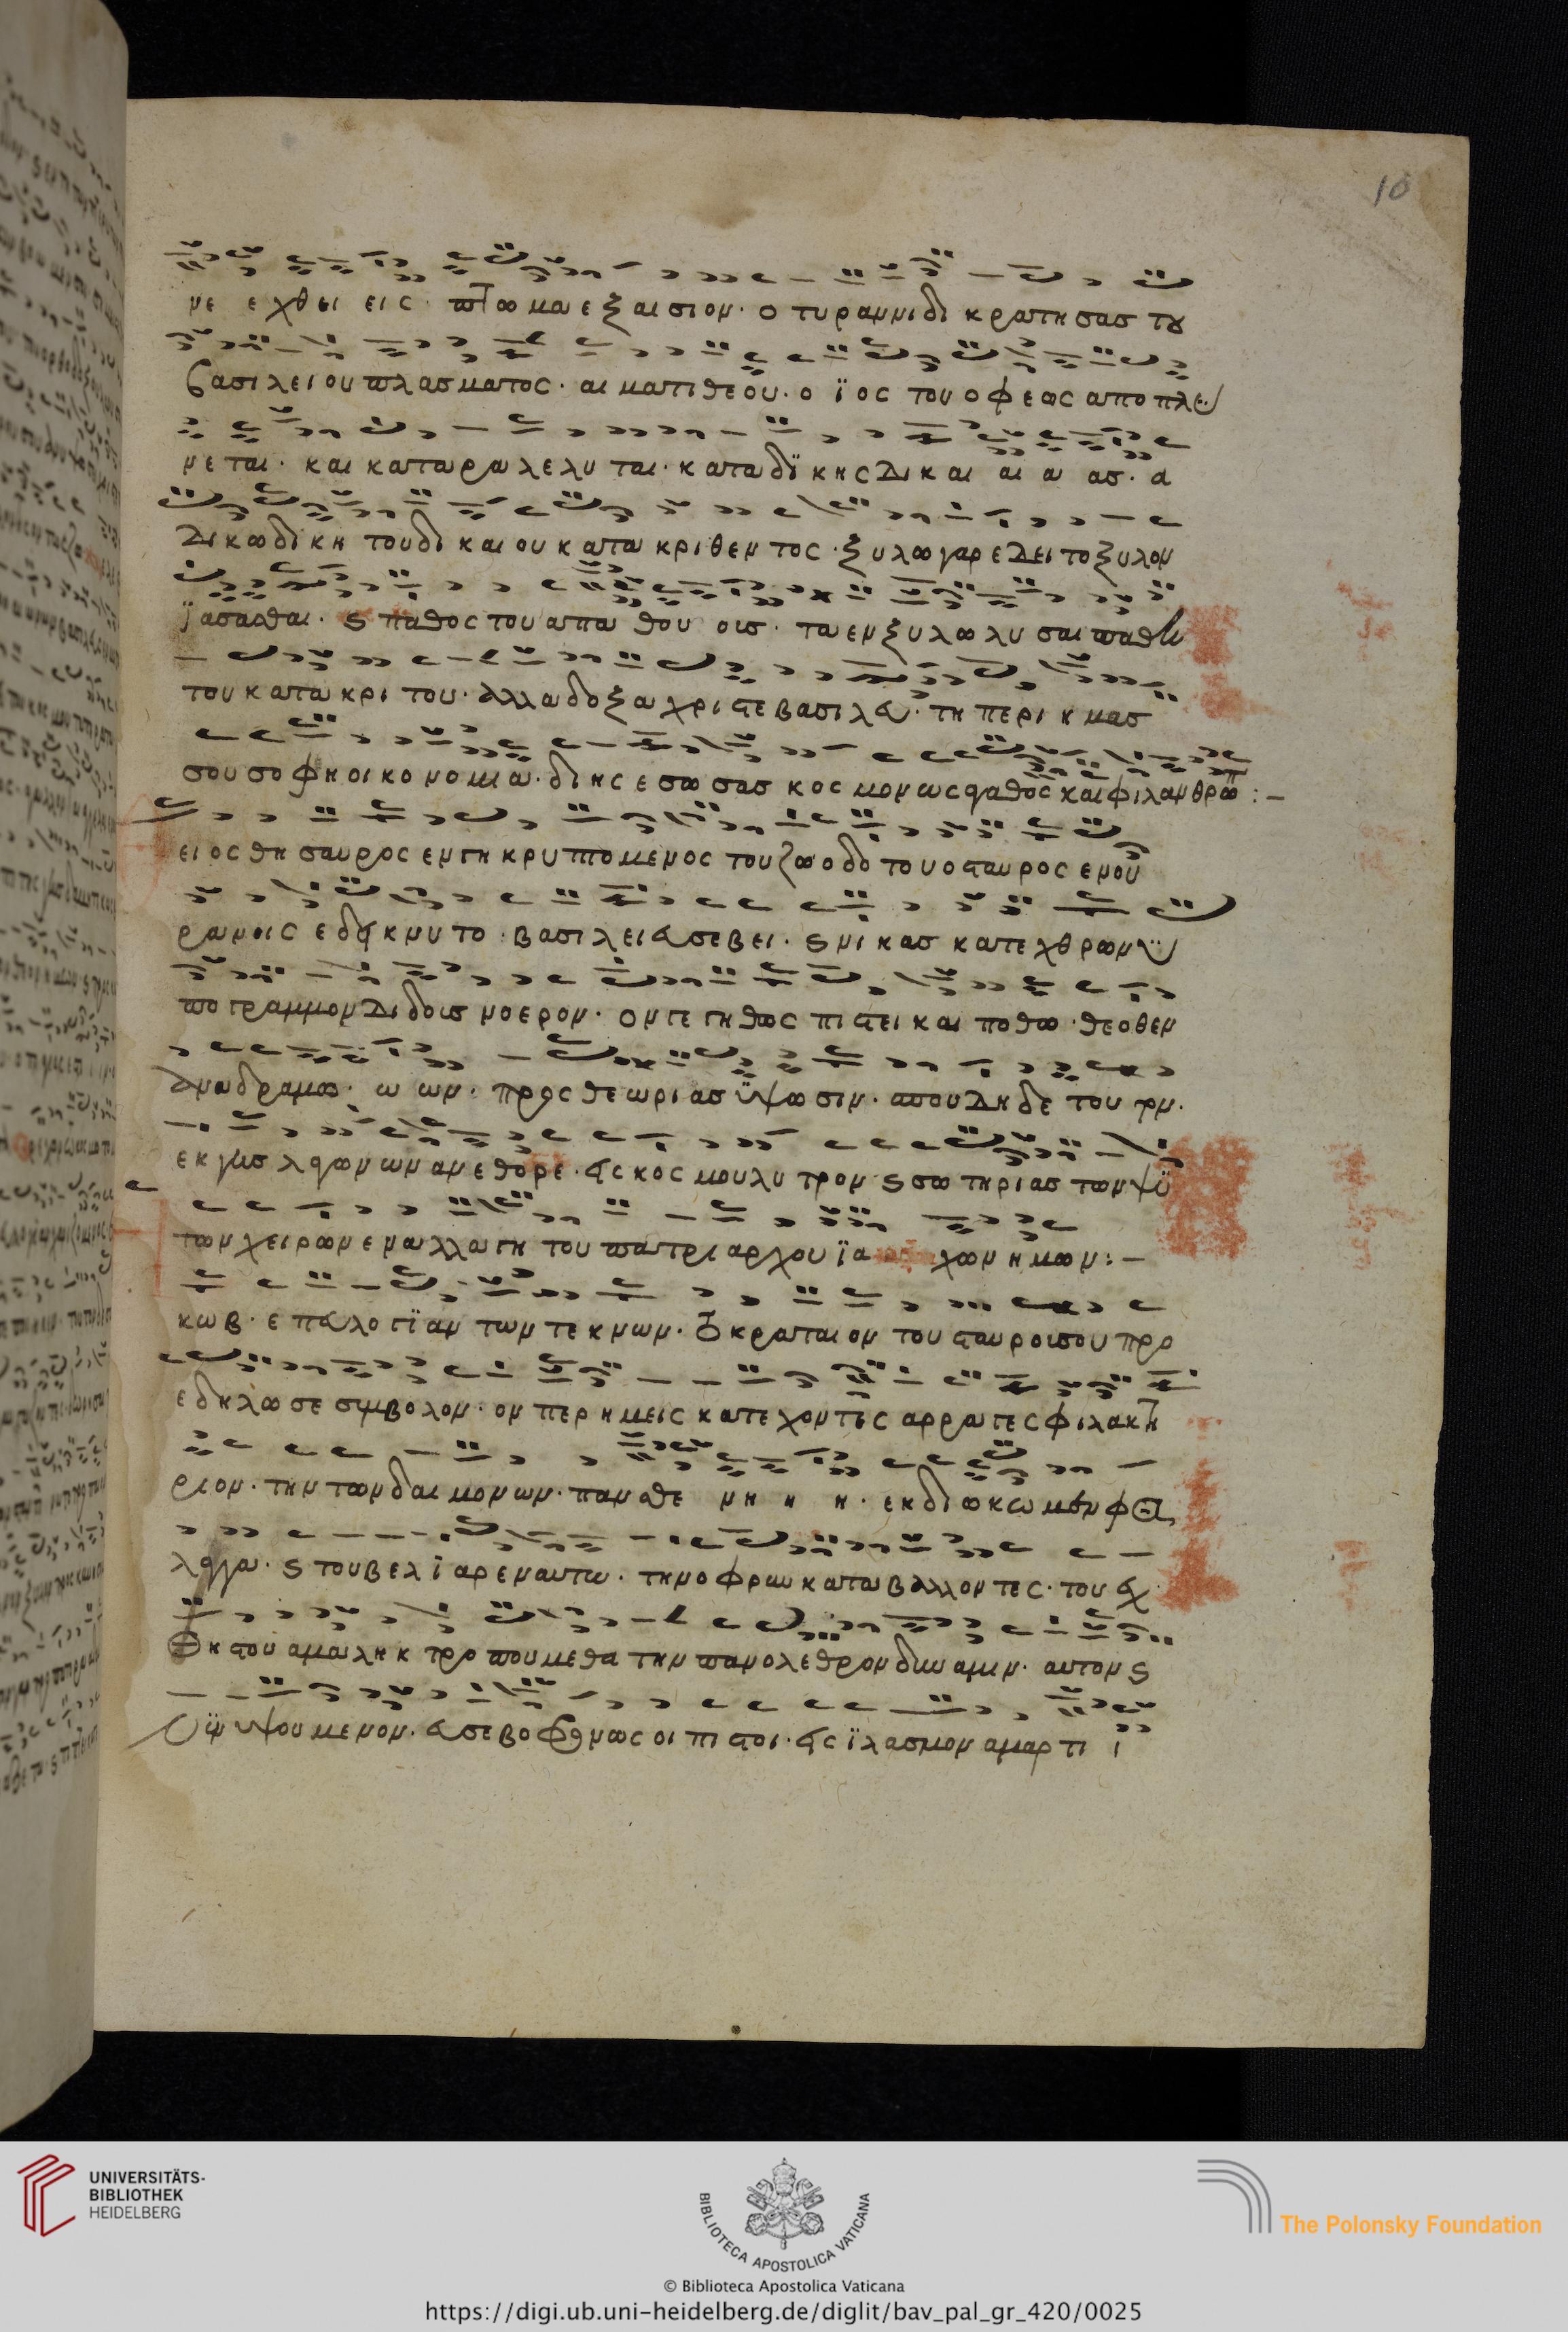 10
νεχθει εις πτωμα εξαισιον · ο τυραννιδι κρατησας του
βασιλειου πλασματος · αιματι θεου · ο ϊος του οφεως αποπλυ
νεται · και καταρα λελυται · καταδϊκης δικαι αι α ας · α
δικω δικη του δικαιου κατακριθεντος · ξυλω γαρ εδει το ξυλον
ϊασασθαι · ς παθος του απαθους · τα εν ξυλω λυσαι παθη
του κατακριτου · αλλα δοξα χριστε βασιλευ · τη περι ημας
σου σοφη οικονομια · δι ης εσωσας κοσμον ως αγαθος και φιλανθρωπ :–
ειος θησαυρος εν γη κρυπτομενος του ζωοδοτου ο σταυρος εν ου
ρανοις εδεικνυτο · βασιλει ευσεβει · ς νικας κατ εχθρων υ
πογραμμον διδους νοερον · ον γεγηθως πιστει και ποθω · θεοθεν
αναδραμω · ω ων · προς θεωριας ϋψωσιν · σπουδη δε του τον
εκ γης λαγωνων ανεθορε · εις κοσμου λυτρον ς σωτηριας των ψϋ
των χειρων εναλλαγη του πατριαρχου ϊα χων ημων :–
κωβ · επ ευλογϊαν των τεκνων · το κραταιον του σταυρου σου προ
εδηλωσε σιμβολον · ον περ ημεις κατεχοντες αρραγες φιλακτη
ριον · την των δαιμονων · πανσθε νη η η · εκδιωκωμεν φα
λαγγα · ς του βελϊαρ εν αυτω · την οφρυν καταβαλλοντες · του εχ
θιστου αμαληκ τροπουμεθα την πανολεθρον δυναμιν · αυτον ς
νϋν υψουμενον · ευσεβοφρονως οι πιστοι · εις ϊλασμον αμαρτι ι
UNIVERSITÄTS-
BIBLIOTHEK
HEIDELBERG
BIBLIOTECA APOSTOLICA VATICANA
The Polonsky Foundation
© Biblioteca Apostolica Vaticana
https://digi.ub.uni-heidelberg.de/diglit/bav_pal_gr_420/0025